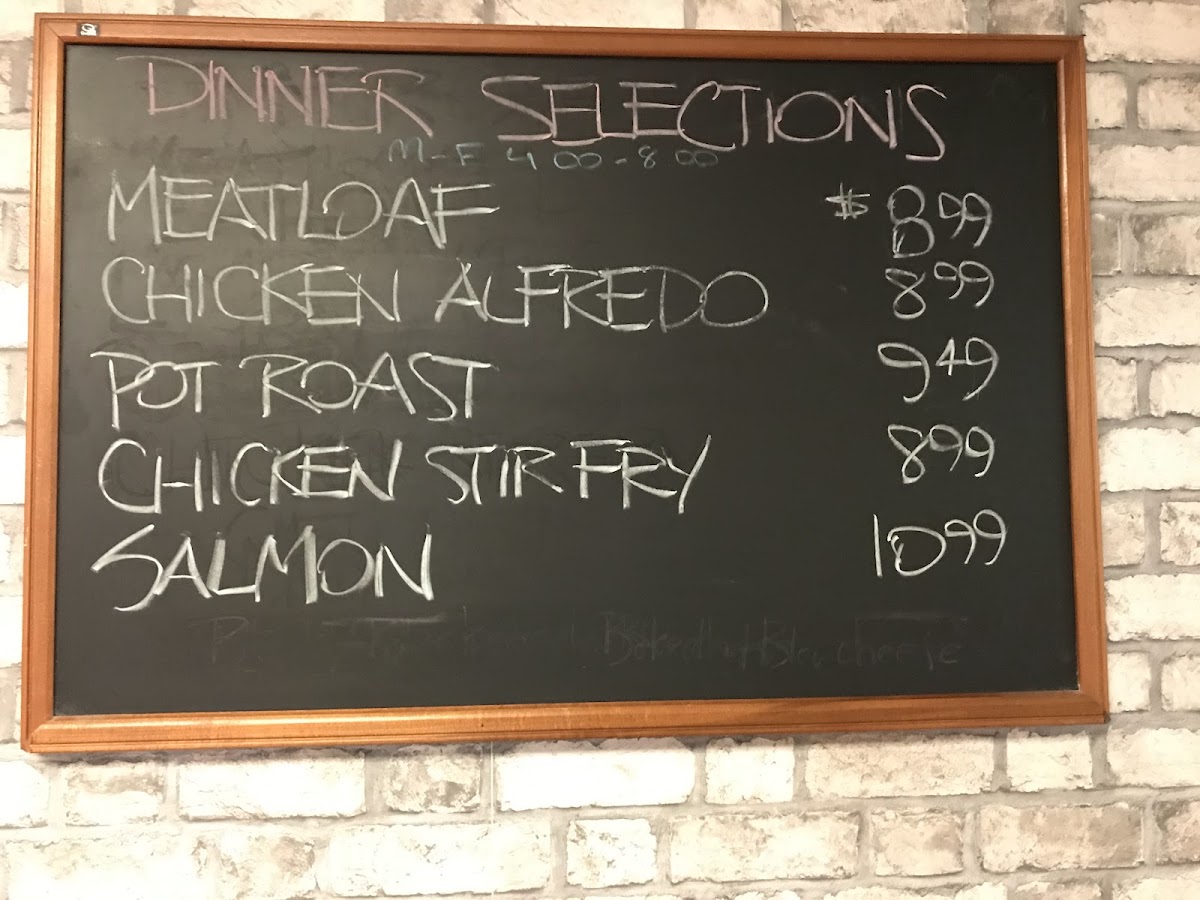 DINNER SELECTIONS
M-F 4 00-8 00
MEATLOAF $ 8 99
CHICKEN ALFREDO 8 99
POT ROAST 9 49
CHICKEN STIR FRY 8 99
SALMON 10 99
cheese